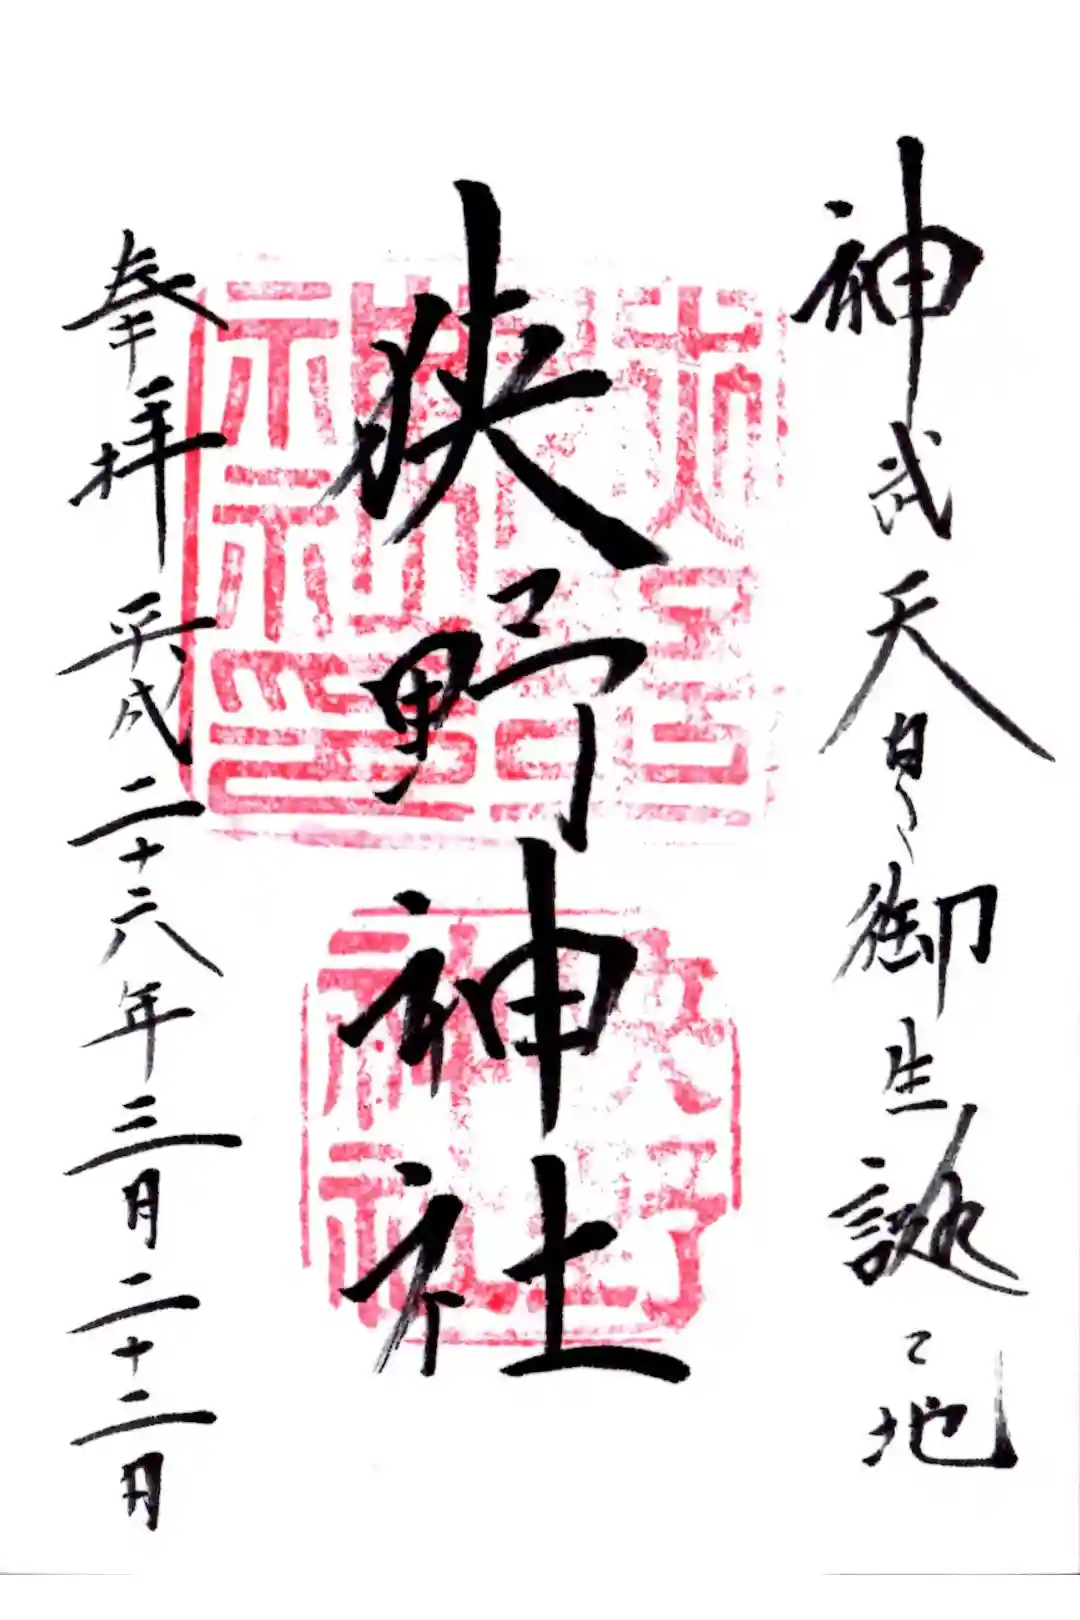 神武天皇御生誕之地
狭野神社
奉拝 平成二十六年三月二十二日
狭野神社